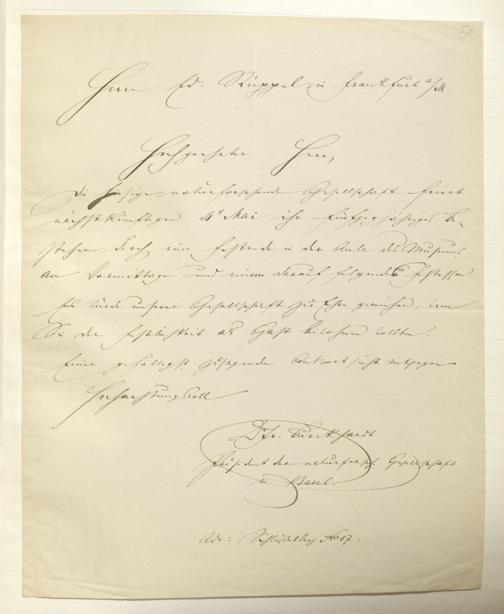 51
Herrn Ed. Rüppel in Frankfurt a/M.
Hochgeehrter Herr,
Die hiesige naturforschende Gesellschaft feiert
nächstkünftigen 4t Mai ihr fünfzigjähriges Be-
stehen durch eine Festrede in der Aula des Museums
am Vormittage und einem darauf folgenden Festessen.
Es würde unserer Gesellschaft zur Ehre gereichen, wenn
Sie der Festlichkeit als Gast beiwohnen wollten.
Einer gefälligst zusagenden Antwort sieht entgegen
Hochachtungsvoll
Dr Fr. Burckhardt
Präsident der naturforsch. Gesellschaft
in Basel.
Adr: No 17.